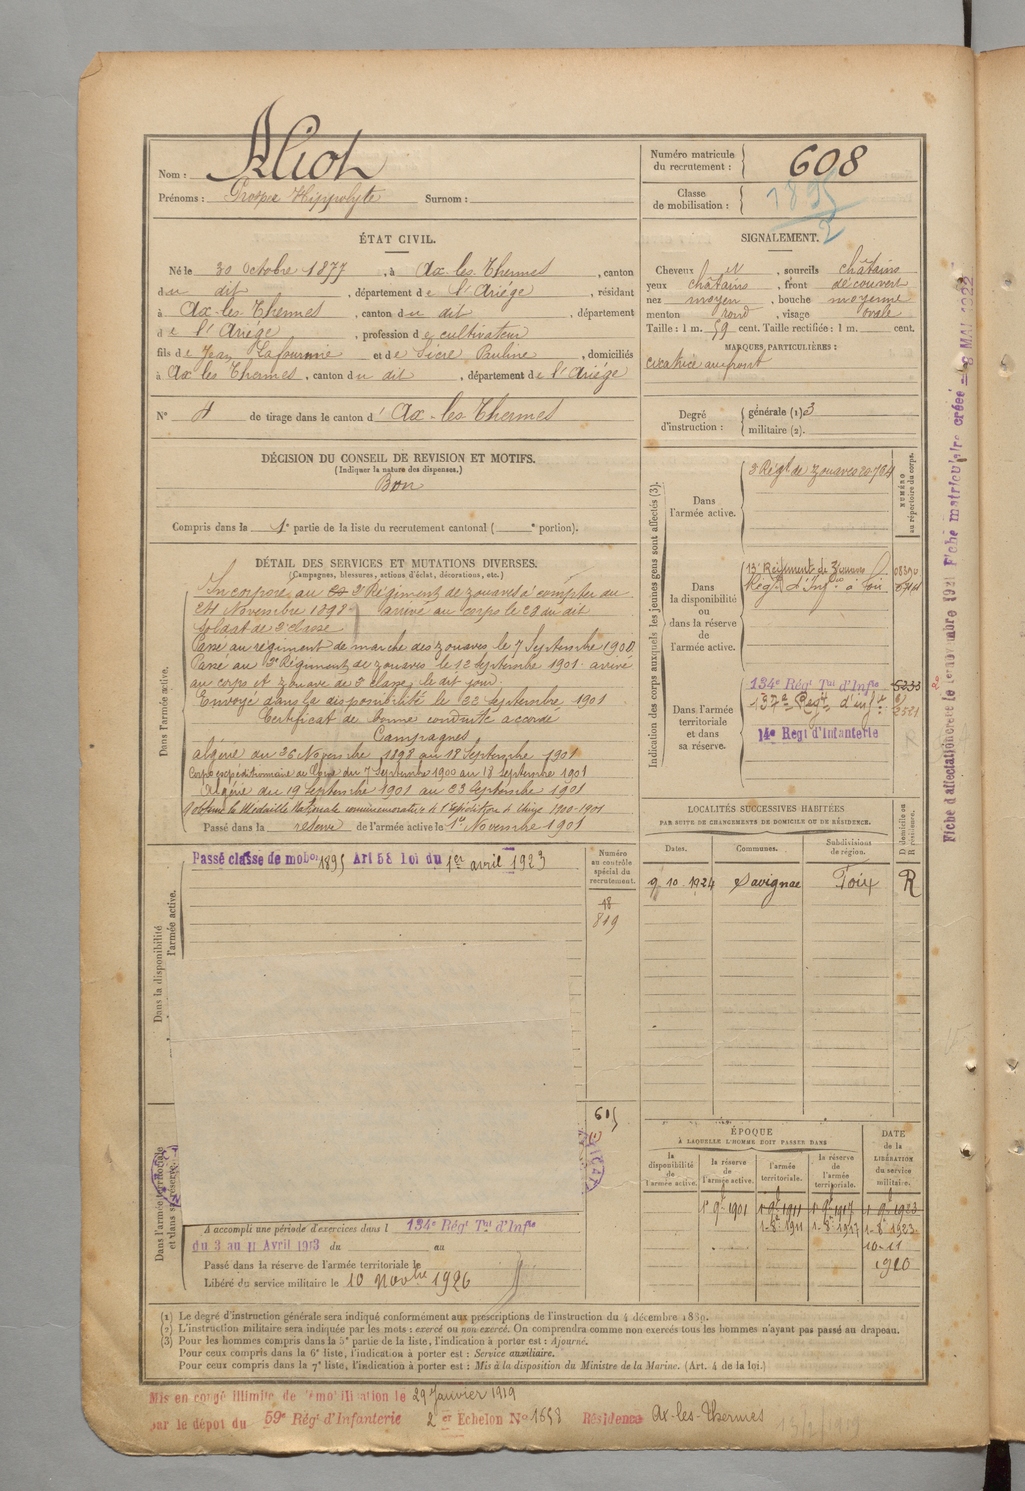 Nom : Alioh
Prénoms : Prosper Hippolyte Surnom :
Numéro matricule du recrutement : 608
Classe de mobilisation : 1895
2
ÉTAT CIVIL.
Né le 30 Octobre 1877, à Ax-les-Thermes, canton
du dit, département de l'Ariége, résidant
à Ax-les-Thermes, canton du dit, département
de l'Ariége, profession de cultivateur
fils de Jean Lafournie et de Sicre Pauline, domiciliés
à Ax les Thermes, canton du dit, département de l'Ariége
N° de tirage dans le canton d'Ax-les-Thermes
DÉCISION DU CONSEIL DE REVISION ET MOTIFS.
(Indiquer la nature des dispenses.)
Bon
Compris dans la 1e partie de la liste du recrutement cantonal ( e portion).
SIGNALEMENT.
Cheveux et, sourcils châtains
yeux châtains, front découvert
nez moyen, bouche moyenne
menton rond, visage ovale
Taille : 1 m. 59 cent. Taille rectifiée : 1 m. cent.
MARQUES PARTICULIÈRES :
cicatrice au front
Degré d'instruction : générale (1) 3
militaire (2).
Indication des corps auxquels les jeunes gens sont affectés (3).
NUMÉRO au répertoire du corps.
Dans l'armée active. 3e Régt de zouaves
Dans la disponibilité ou dans la réserve de l'armée active.
13e Régiment de Zouaves
Régt d'Infie à Foix
Dans l'armée territoriale et dans sa réserve.
134e Régt Tal d'Infie 5233
137e Regt d'inf 2521
14e Régt d'Infanterie
DÉTAIL DES SERVICES ET MUTATIONS DIVERSES.
(Campagnes, blessures, actions d'éclat, décorations, etc.)
Dans l'armée active.
Incorporé au 3e Régiment de zouaves à compter du
24 Novembre 1898 arrivé au corps le 28 du dit
soldat de 2e classe
Passé au régiment de marche des zouaves le 7 Septembre 1900
Passé au 3e Régiment de zouaves le 12 Septembre 1901 arrivé
au corps et zouave de 2e classe le dit jour.
Envoyé dans la disponibilité le Septembre 1901
Certificat de bonne conduite accordé
Campagnes
Algérie du 26 Novembre 1898 au 18 Septembre 1901
Corps expéditionnaire de Chine du 7 Septembre 1900 au 18 Septembre 1901
Algérie du 19 Septembre 1901 au 23 Septembre 1901
A obtenu la Médaille Nationale commémorative de l'Expédition de Chine 1900-1901
Passé dans la réserve de l'armée active le 1er Novembre 1901
LOCALITÉS SUCCESSIVES HABITÉES
PAR SUITE DE CHANGEMENTS DE DOMICILE OU DE RÉSIDENCE.
Dates. Communes. Subdivisions de région. D domicile ou R résidence.
9 10 1924 Savignac Foix R
Dans la disponibilité
l'armée active.
Passé classe de mobon 1895 Art 58 loi du 1er avril 1923
Numéro au contrôle spécial du recrutement.
18
819
615
Dans l'armée territoriale et dans sa réserve.
A accompli une période d'exercices dans l 134e Régt Tal d'Infie
du 3 au 11 Avril 1913 du au
Passé dans la réserve de l'armée territoriale le
Libéré du service militaire le 10 Novbre 1926
ÉPOQUE
À LAQUELLE L'HOMME DOIT PASSER DANS
la disponibilité de l'armée active. la réserve de l'armée active. l'armée territoriale. la réserve de l'armée territoriale. DATE de la LIBÉRATION du service militaire.
1e 9 1901 1e 9 1911 1e 9 1917 1 9 1923
1-8 1911 1-8 1917 1-8 1923
10-11
1920
(1) Le degré d'instruction générale sera indiqué conformément aux prescriptions de l'instruction du 4 décembre 1889.
(2) L'instruction militaire sera indiquée par les mots : exercé ou non exercé. On comprendra comme non exercés tous les hommes n'ayant pas passé au drapeau.
(3) Pour les hommes compris dans la 5e partie de la liste, l'indication à porter est : Ajourné.
Pour ceux compris dans la 6e liste, l'indication à porter est : Service auxiliaire.
Pour ceux compris dans la 7e liste, l'indication à porter est : Mis à la disposition du Ministre de la Marine. (Art. 4 de la loi.)
Mis en congé illimité de démobilisation le 29 Janvier 1919
par le dépôt du 59e Régt d'Infanterie 2e Echelon No 1658 Résidence Ax-les-Thermes
Fiche matriculaire créée MAI 1922